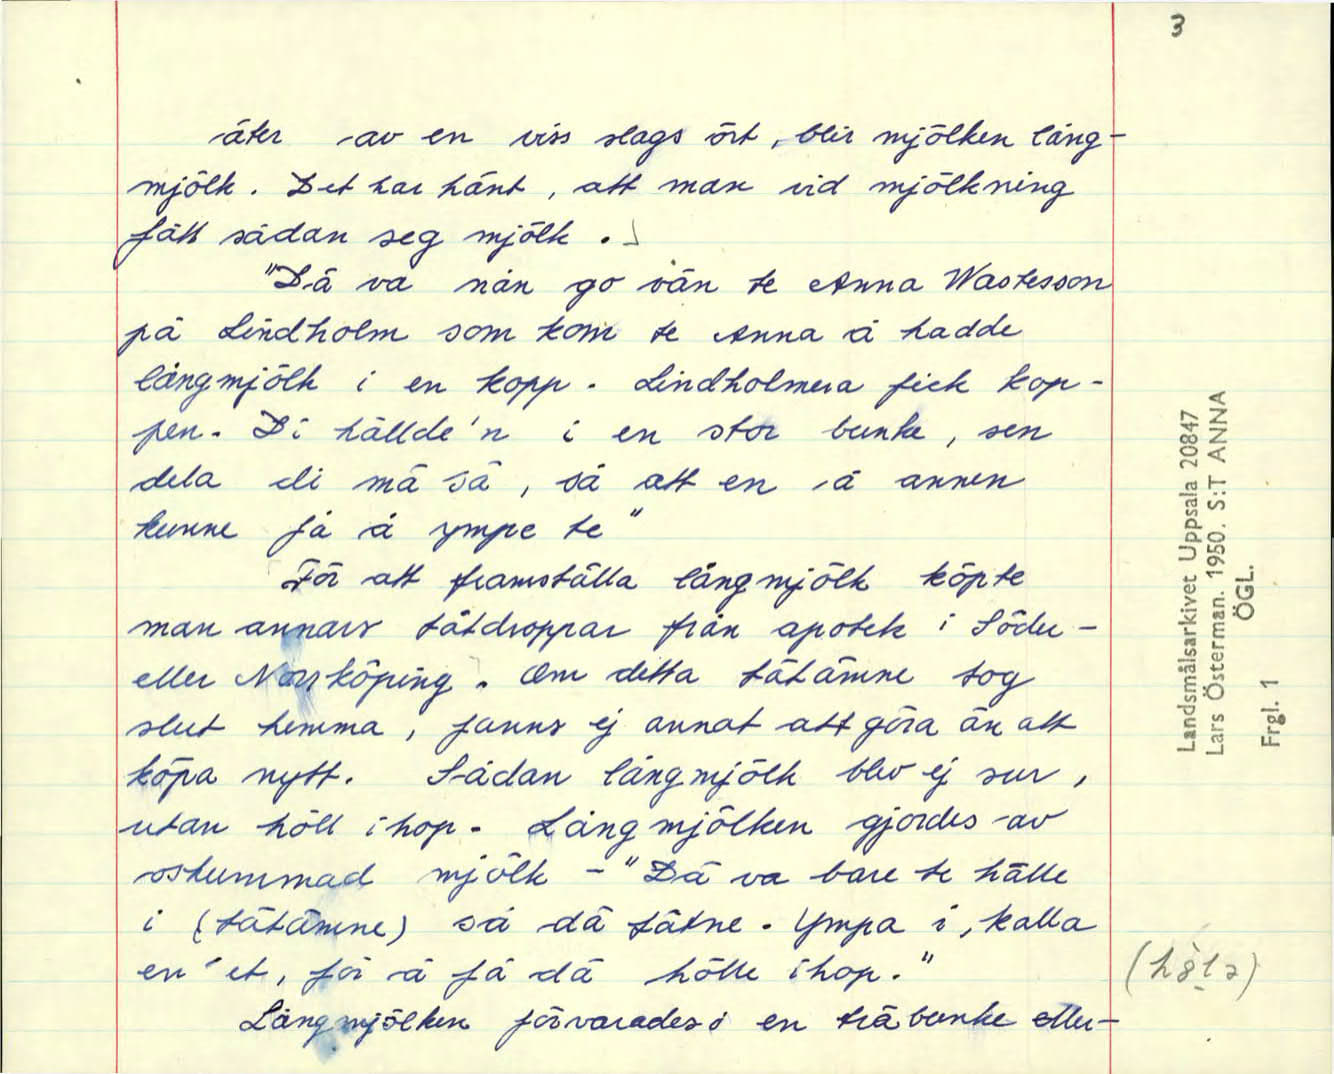 3
äter av en viss slags ört, blir mjölken lång-
mjölk. Det har hänt, att man vid mjölkning
fått sådan seg mjölk.
"Dä va nån go vän te Anna Wastesson
på Lindholm som kom te Anna å hadde
långmjölk i en kopp. Lindholmera fick kop-
pen. Di hällde'n i en stor bunke, sen
dela di mä sä, så att en å annen
kunne få å ympe te"
För att framställa långmjölk köpte
man annars tätdroppar från apotek i Söder-
eller Norrköping. Om detta tätämne tog
slut hemma, fanns ej annat att göra än att
köpa nytt. Sådan långmjölk blev ej sur,
utan höll ihop. Långmjölken gjordes av
oskummad mjölk - "Dä va bare te hälle
i (tätämne) så dä tätne. Ympa i, kalla
en et, för å få dä hölle ihop."
Långmjölken förvarades i en träbunke eller
Landsmålsarkivet Uppsala 20847
Lars Österman. 1950. S:T ANNA
ÖGL.
Frgl. 1